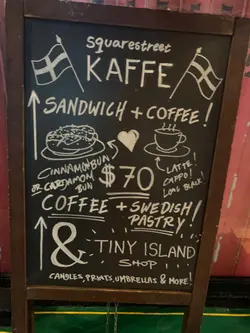 squarestreet
KAFFE
SANDWICH + COFFEE!
CINNAMONBUN
OR CARDAMON
BUN
$70
LATTE!
CAPPO!
LONG BLACK!
COFFEE + SWEDISH
PASTRY!
& TINY ISLAND
SHOP
CANDLES, PRINTS, UMBRELLAS & MORE!